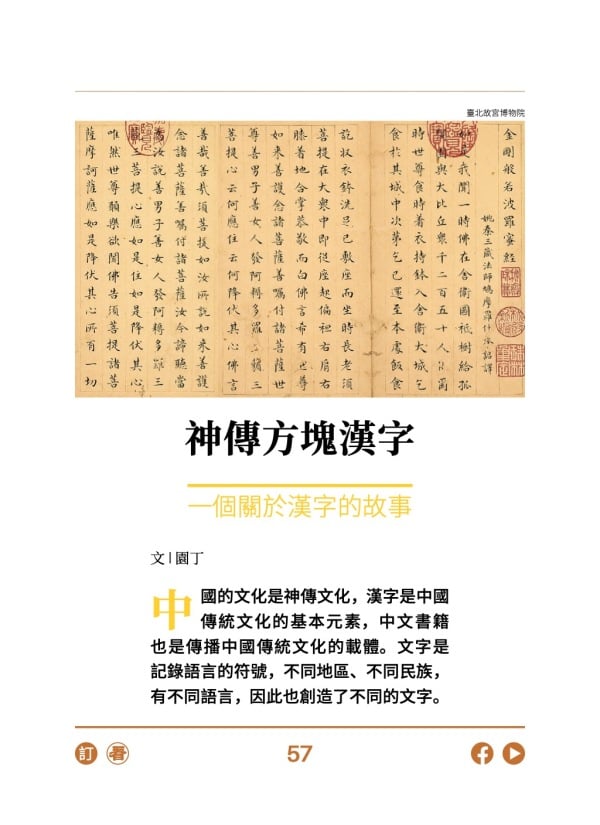 臺北故宮博物院
金剛般若波羅蜜經
姚秦三藏法師鳩摩羅什奉詔譯
我聞一時佛在舍衛國祇樹給孤
園與大比丘眾千二百五十人俱爾
時世尊食時着衣持鉢入舍衛大城乞
食於其城中次第乞已還至本處飯食
訖收衣鉢洗足已敷座而坐時長老須
菩提在大眾中即從座起偏袒右肩右
膝着地合掌恭敬而白佛言希有世尊
如來善護念諸菩薩善囑付諸菩薩世
尊善男子善女人發阿耨多羅三藐三
菩提心云何應住云何降伏其心佛言
善哉善哉須菩提如汝所說如來善護
念諸菩薩善囑付諸菩薩汝今諦聽當
汝說善男子善女人發阿耨多羅三
三菩提心應如是住如是降伏其心
唯然世尊願樂欲聞佛告須菩提諸菩
薩摩訶薩應如是降伏其心所有一切
神傳方塊漢字
一個關於漢字的故事
文 | 園丁
中國的文化是神傳文化，漢字是中國
傳統文化的基本元素，中文書籍
也是傳播中國傳統文化的載體。文字是
記錄語言的符號，不同地區、不同民族，
有不同語言，因此也創造了不同的文字。
訂 看 57